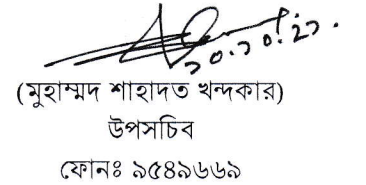 ২০.১০.২১.
(মুহাম্মদ শাহাদত খন্দকার)
উপসচিব
ফোনঃ ৯৫৪৯৬৬৯